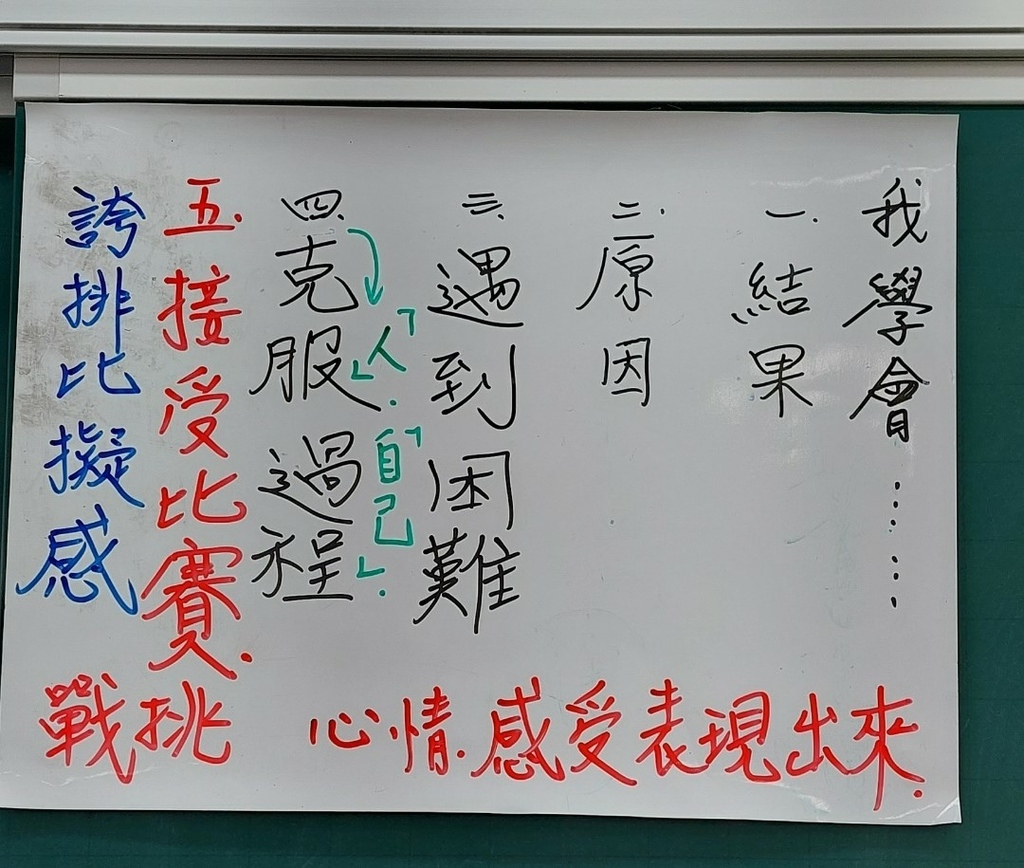 我學會……
一.結果
二.原因
三、遇到困難
四、克服過程
「人」.「自己」.
五.接受比賽.
挑戰
誇排比擬感
心情.感受表現出來.